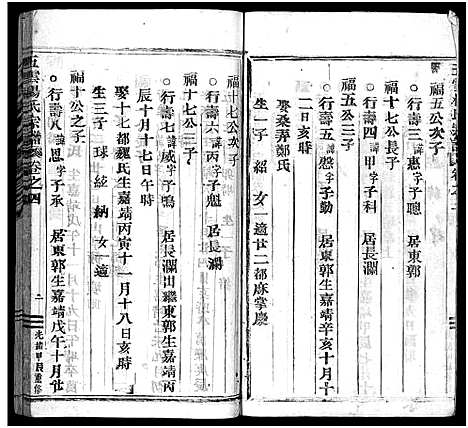 福五公次子
行壽三諱惠字子聰
福十七公長子
行壽四諱甲字子科 居長瀾
福五公三子
行壽五諱憲字子 居東郭生嘉靖辛亥十月十
二日亥時
娶桑弄鄭氏
生一子 紹 女一適廿二都麻掌慶
福十七公次子
行壽六諱丙字子魁 居長瀾
福十七公三子
行壽七諱威字子鳴 居長瀾出繼東郭生嘉靖丙
辰十月十七日午時
娶十七都魏氏生嘉靖丙寅十一月十八日亥時
生三子 球 紘 納 女一適
福十公之子
行壽八諱愻字子承 居東郭生嘉靖戊午十月廿
五雲楊氏宗譜 卷之四
二
光緒甲辰重修